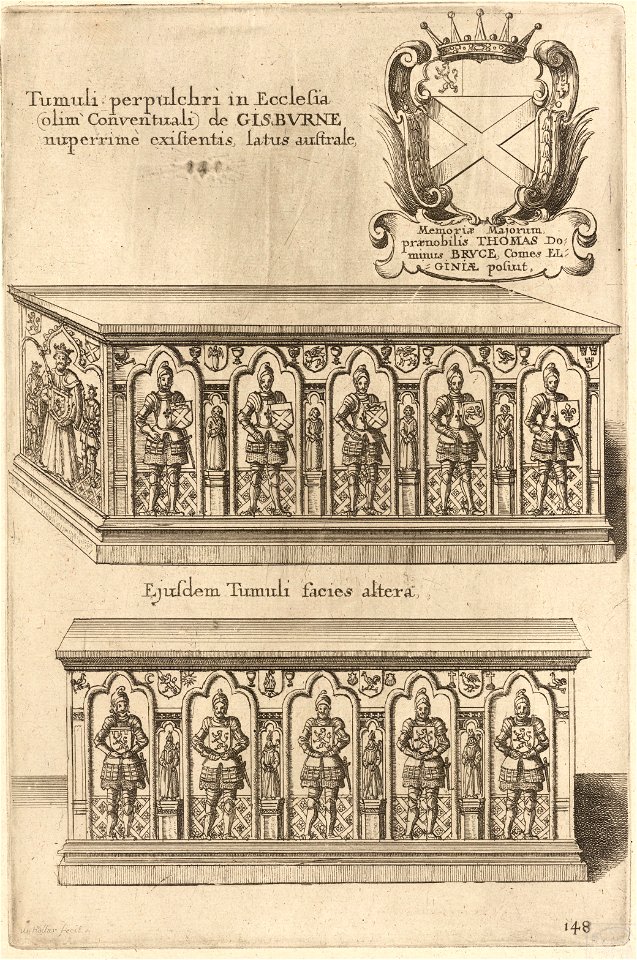 Tumuli perpulchri in Ecclesia
(olim Conventuali) de GISBVRNE
nuperrimè existentis, latus australe,
Memoriæ Majorum
prænobilis THOMAS Do-
minus BRVCE, Comes EL-
GINIÆ posuit,
Ejusdem Tumuli facies altera,
W Hollar fecit
148